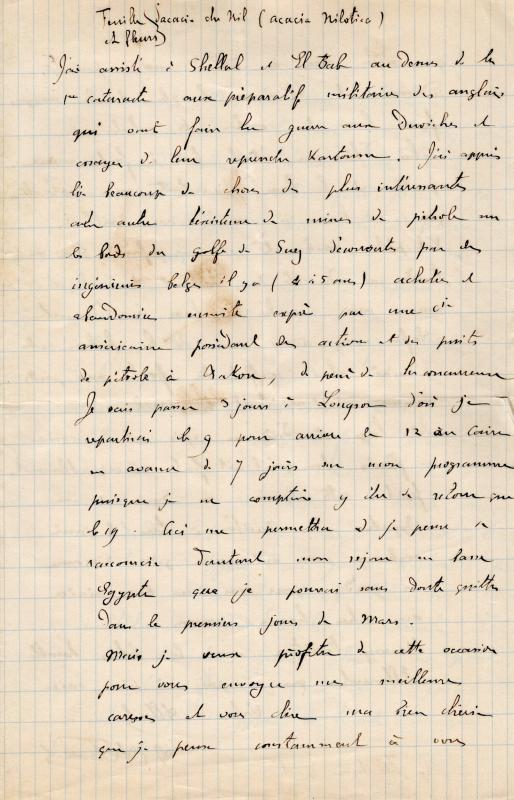 Feuilles } d'acacia du Nil (acacia Nilotica)
et fleurs }
J'ai assisté à Shellal et El Bab au dessus de la
1re cataracte aux préparatifs militaires des anglais
qui vont faire la guerre aux Derviches et
essayer de leur reprendre Kartoum. J'ai appris
là beaucoup de choses des plus intéressantes
entre autre l'existence de mines de pétrole sur
les bords du golfe de Suez découvertes par des
ingénieurs belges il y a (4 à 5 ans) achetées et
abandonnées ensuite exprès par une Cie
américaine possédant des actions et des puits
de pétrole à Bakou, de peur de la concurrence
Je vais passer 3 jours à Louqsor d'où je
repartirai le 9 pour arriver le 12 au Caire
en avance de 7 jours sur mon programme
puisque je ne comptais y être de retour que
le 19. Ceci me permettra et je pense
raccourcir d'autant mon séjour en basse
Egypte que je pourrai sans doute quitter
dans les premiers jours de Mars.
Mais je veux profiter de cette occasion
pour vous envoyer mes meilleures
caresses et vous dire ma bien chérie
que je pense constamment à vous